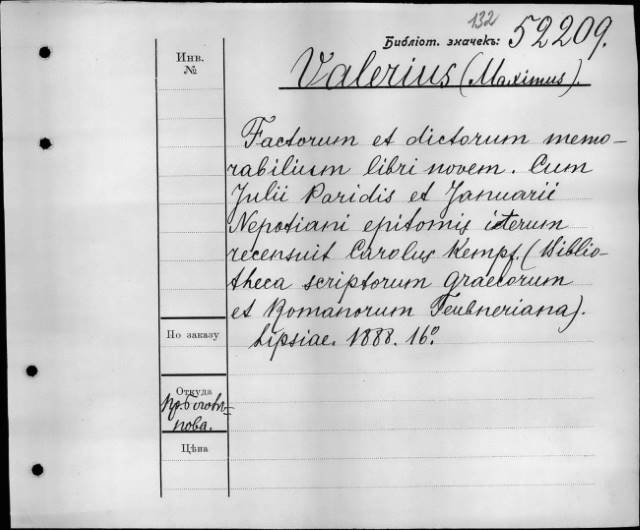 132
Библіот. значекъ: 52209.
Инв.
№
Valerius (Maximus).
Factorum et dictorum memo-
rabilium libri novem. Cum
Julii Paridis et Januarii
Nepotiani epitomis iterum
recensuit Carolus Kempf. (Biblio-
theca scriptorum graecorum
et Romanorum Teubneriana).
Lipsiae. 1888. 16º
По заказу
Откуда
нова.
Цѣна